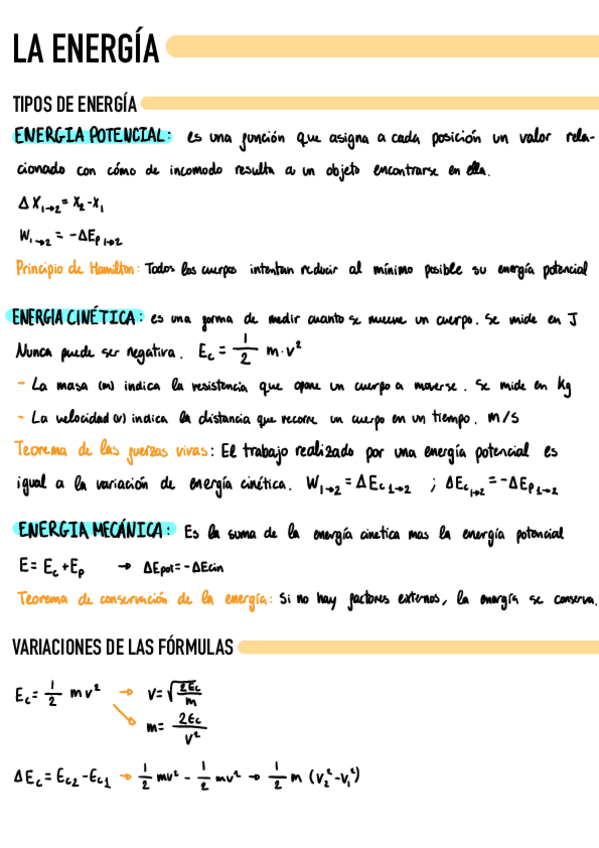 LA ENERGÍA
TIPOS DE ENERGÍA
ENERGIA POTENCIAL: es una función que asigna a cada posición un valor rela-
cionado con cómo de incomodo resulta a un objeto encontrarse en ella.
ΔX₁→₂ = X₂-X₁
W₁→₂ = -ΔEp₁→₂
Principio de Hamilton: Todos los cuerpos intentan reducir al mínimo posible su energía potencial
ENERGIA CINÉTICA: es una forma de medir cuanto se mueve un cuerpo. Se mide en J
Nunca puede ser negativa. Ec = 1/2 m·v²
- La masa (m) indica la resistencia que opone un cuerpo a moverse. Se mide en Kg
- La velocidad (v) indica la distancia que recorre un cuerpo en un tiempo. m/s
Teorema de las fuerzas vivas: El trabajo realizado por una energía potencial es
igual a la variación de energía cinética. W₁→₂ = ΔEc₁→₂ ; ΔEc₁→₂ = -ΔEp₁→₂
ENERGIA MECÁNICA: Es la suma de la energía cinetica mas la energía potencial
E = Ec + Ep → ΔEpot = -ΔEcin
Teorema de conservación de la energía: Si no hay factores externos, la energía se conserva.
VARIACIONES DE LAS FÓRMULAS
Ec = 1/2 mv² → v = √(2Ec/m)
m = 2Ec/v²
ΔEc = Ec2 - Ec1 → 1/2 mv² - 1/2 mv² → 1/2 m (v₂²-v₁²)